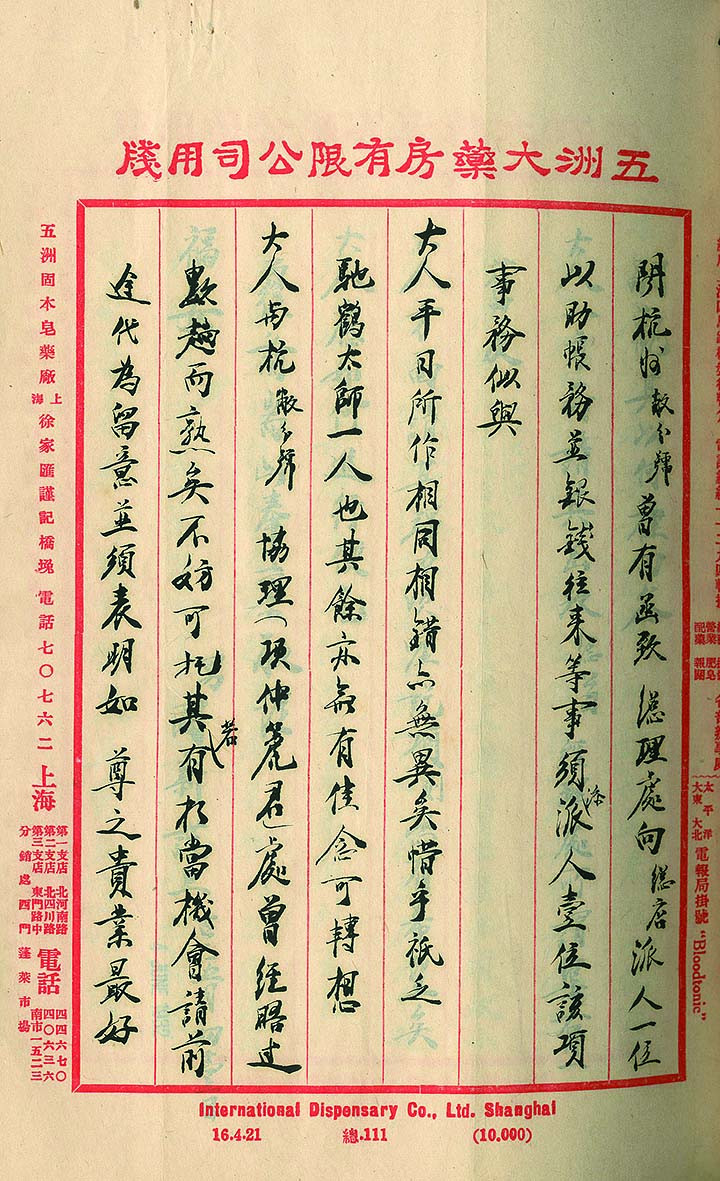 五洲大藥房有限公司用牋
聞杭州敝分號曾有函致 總理處向總店派人一位
以助帳務並銀錢往來等事須添派人壹位該項
事務似與
大人平日所作相同相錯亦無異矣惜乎祇乏
馳鶴太師一人也其餘亦無有佳念可轉想
大人與杭敝分號協理(項仲 君)處曾經晤过
數趟而熟矣不妨可托其若有相當機會請前
途代為留意並須表明如 尊之貴業最好
五洲固本皂藥廠 上海 徐家匯謹記橋堍 電話七〇七六二
上海
第一支店 北河南路
第二支店 北四川路
第三支店 東門路中
分銷處 西門蓬萊市場
電話
四四六七〇
四〇六三六
南市一五二三
太平洋
大東 大北
電報局掛號 "Bloodtonic"
International Dispensary Co., Ltd. Shanghai
16.4.21 總.111 (10.000)